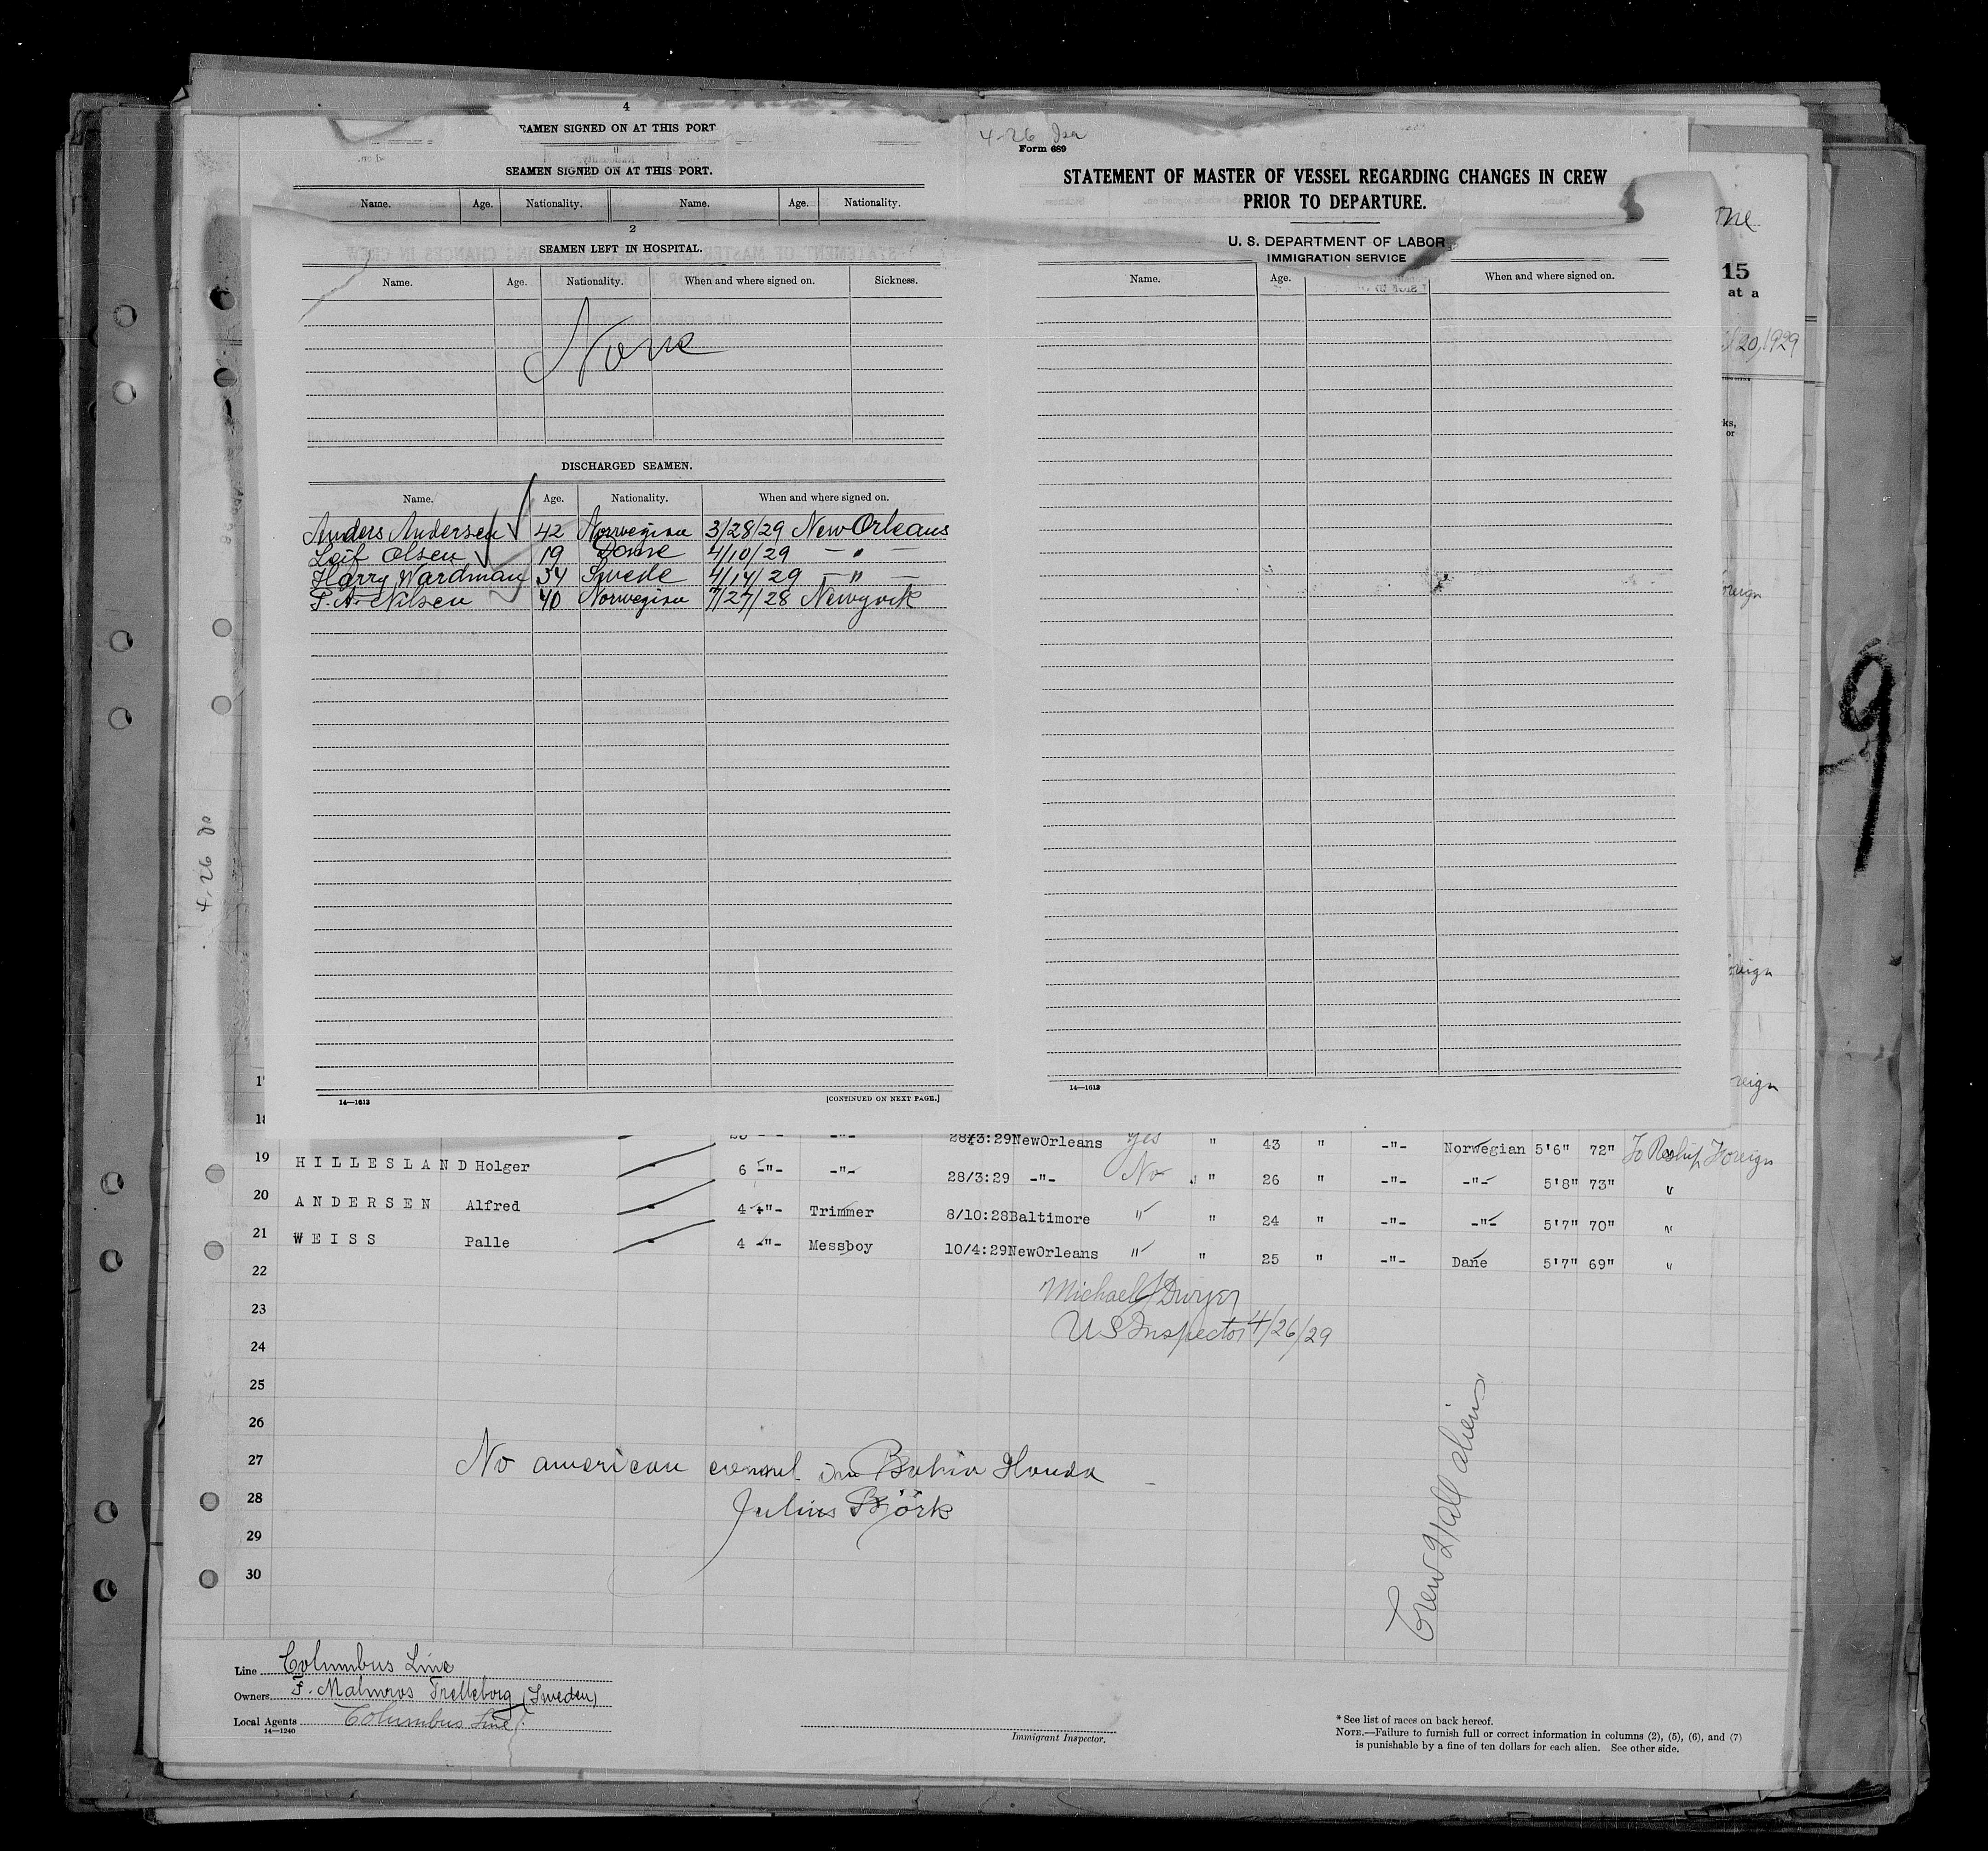 4
EAMEN SIGNED ON AT THIS PORT
SEAMEN SIGNED ON AT THIS PORT.
Name. Age. Nationality. Name. Age. Nationality.
2
SEAMEN LEFT IN HOSPITAL.
Name. Age. Nationality. When and where signed on. Sickness.
None
DISCHARGED SEAMEN.
Name. Age. Nationality. When and where signed on.
Anders Andersen 42 Norwegian 3/28/29 New Orleans
Leif Olsen 19 Dane 4/10/29 — " —
Harry Wardman 34 Swede 4/14/29 — " —
T. A. Nilsen 40 Norwegian 7/27/28 Newyork
14—1613 [CONTINUED ON NEXT PAGE.]
4-26
Form 689
STATEMENT OF MASTER OF VESSEL REGARDING CHANGES IN CREW
PRIOR TO DEPARTURE.
U. S. DEPARTMENT OF LABOR
IMMIGRATION SERVICE
Name. Age. When and where signed on.
14—1613
15
at a
20, 1929
ks,
or
oreign
oreign
reign
9
4-26
28/3:29NewOrleans Yes " 43 " -"- Norwegian 5'6" 72" To Reship Foreign
19 HILLESLAND Holger 6 -"- -"- 28/3:29 -"- No " 26 " -"- -"- 5'8" 73" "
20 ANDERSEN Alfred 4 -"- Trimmer 8/10:28Baltimore " " 24 " -"- -"- 5'7" 70" "
21 WEISS Palle 4 -"- Messboy 10/4:29NewOrleans " " 25 " -"- Dane 5'7" 69" "
22
23
24
25
26
27
28
29
30
Michael J Dwyer
US Inspector 4/26/29
No american consul in Bahia Honda
Julius Björk
Crew 21 all aliens
Line Columbus Line
Owners F. Malmros Trelleborg (Sweden)
Local Agents Columbus Line
14—1240
Immigrant Inspector.
* See list of races on back hereof.
NOTE.—Failure to furnish full or correct information in columns (2), (5), (6), and (7)
is punishable by a fine of ten dollars for each alien. See other side.